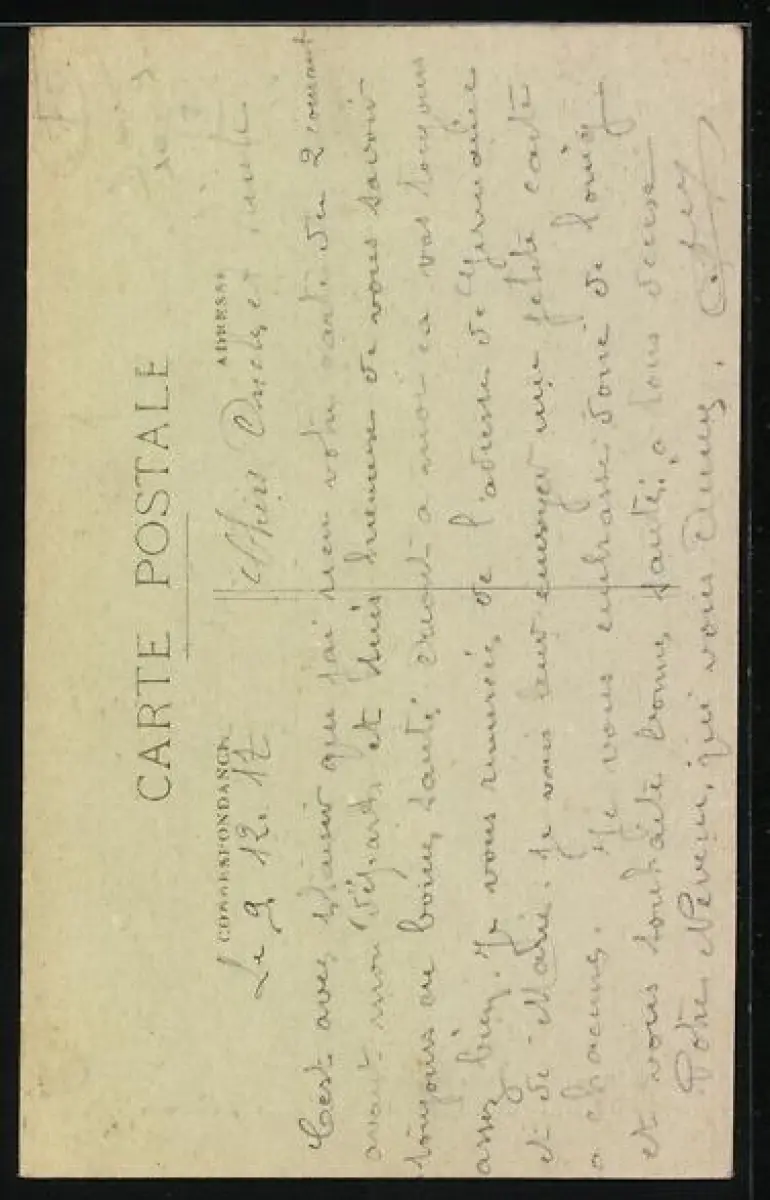 CARTE POSTALE
CORRESPONDANCE
ADRESSE
Le 9 12. 17
Chers Oncle et tante
C'est avec plaisir que j'ai recu votre carte du 2 courant
avant mon départ, et suis heureuse de vous savoir
toujours en bonne santé, quant a moi ca vas toujours
assez bien. Je vous remercie de l'adresse de Germaine
et de Marie. Je vais leur envoyer une petite carte
a chacune. Je vous embrasse donc de loing
et vous souhaite bonne santé, a tous deux
Votre Neveu, qui vous aime.